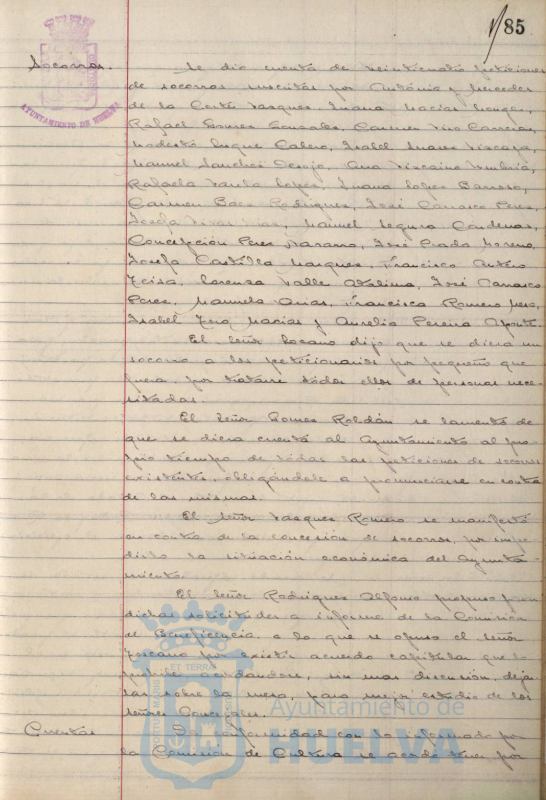 85
Socorros.
AYUNTAMIENTO DE HUELVA
Se dio cuenta de veinticuatro peticiones
de socorros suscritas por Antonia y Mercedes
de la Corte Vazquez, Juana Macias Monge,
Rafael Gomez Gonzalez, Carmen Toro Carrero,
Modesto Duque Calero, Isabel Suarez Vizcaya,
Manuel Sanchez Ana Vizcaino
Rafaela Varela Lopez, Juana Lopez Barroso,
Carmen Baez Rodriguez, José Carrasco Perez,
Josefa Manuel Segura Cardenas,
Concepción Perez Navarro, José Prado Moreno,
Josefa Castilla Marquez, Francisco
Lorenza Valle José Carrasco
Perez, Manuela Arias, Francisca Romero
Isabel Toro Macias y Amelia Pereña
El Señor dijo que se diera un
socorro a los peticionarios por pequeño que
fuera, por tratarse todos ellos de personas nece-
sitadas.
El Señor Gomez Roldán se lamentó de
que se diera cuenta al Ayuntamiento al pro-
pio tiempo de todas las peticiones de socorros
existentes, obligándole a pronunciarse en contra
de las mismas.
El Señor Vazquez Romero se manifestó
en contra de la concesión de socorros, por impe-
dirlo la situación económica del Ayunta-
miento.
El Señor Rodriguez Alfonso propuso
dichas solicitudes a informe de la Comision
de Beneficencia, a lo que se opuso el Señor
por existir acuerdo capitular que lo
prohibe acordandose, sin mas discusión, deja-
las sobre la mesa, para mejor estudio de los
Señores Concejales.
Cuentas
De conformidad con lo informado por
la Comisión de Cultura se acordó por
Ayuntamiento de
HUELVA